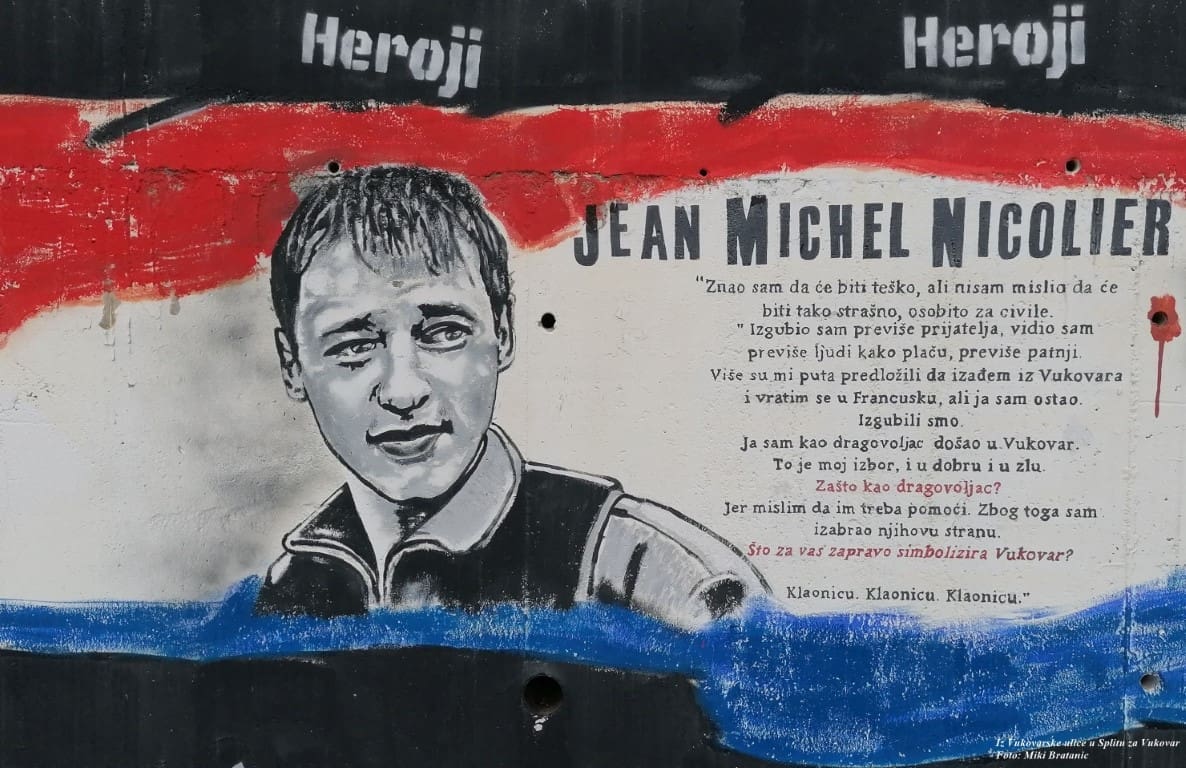 Heroji
Heroji
JEAN MICHEL NICOLIER
"Znao sam da će biti teško, ali nisam mislio da će
biti tako strašno, osobito za civile.
" Izgubio sam previše prijatelja, vidio sam
previše ljudi kako plaču, previše patnji.
Više su mi puta predložili da izađem iz Vukovara
i vratim se u Francusku, ali ja sam ostao.
Izgubili smo.
Ja sam kao dragovoljac došao u Vukovar.
To je moj izbor, i u dobru i u zlu.
Zašto kao dragovoljac?
Jer mislim da im treba pomoći. Zbog toga sam
izabrao njihovu stranu.
Što za vas zapravo simbolizira Vukovar?
Klaonicu. Klaonicu. Klaonicu."
Iz Vukovarske ulice u Splitu za Vukovar
Foto: Miki Bratanic